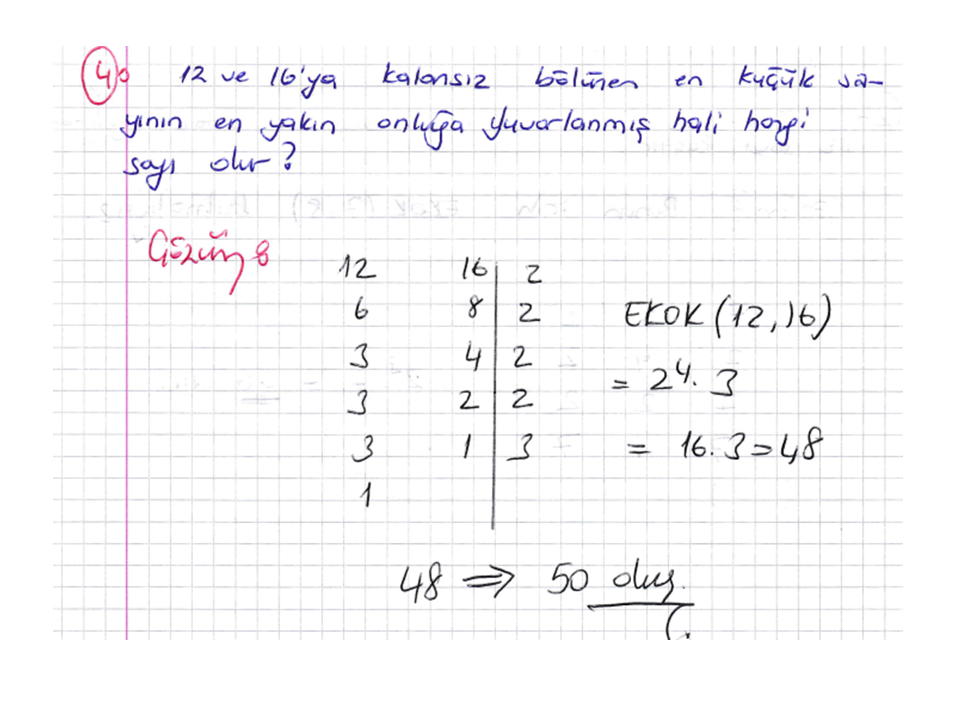 4) 12 ve 16'ya kalansız bölünen en küçük sa-
yının en yakın onluğa yuvarlanmış hali hangi
sayı olur?
Çözüm:
12 16 | 2
6 8 | 2
3 4 | 2
3 2 | 2
3 1 | 3
1
EKOK (12, 16)
= 2⁴. 3
= 16. 3 = 48
48 ⇒ 50 olur.